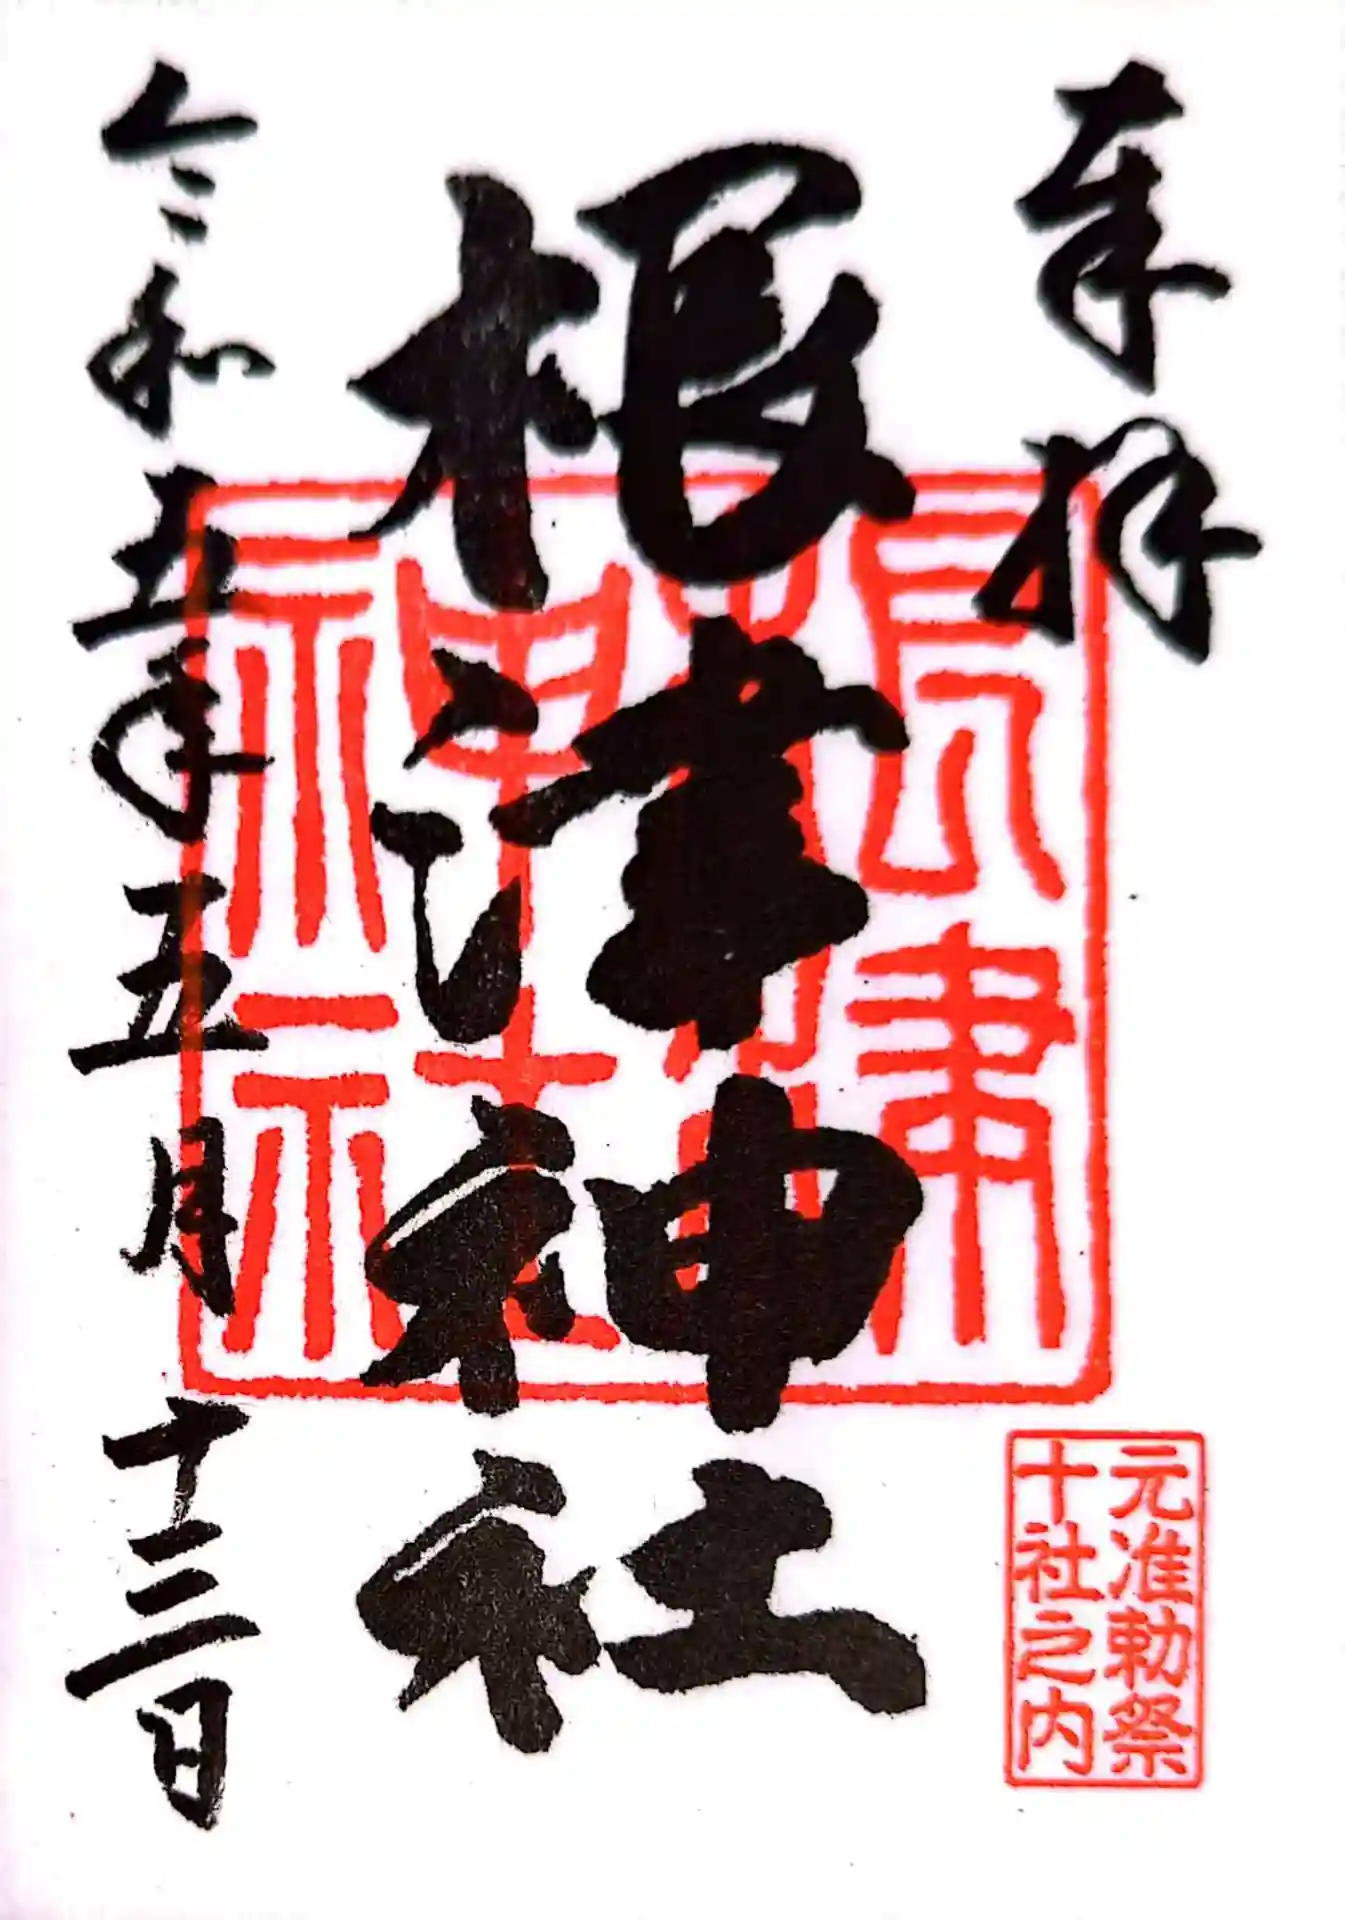 奉拝
根津神社
令和五年五月十三日
根津神社
元准勅祭
十社之内